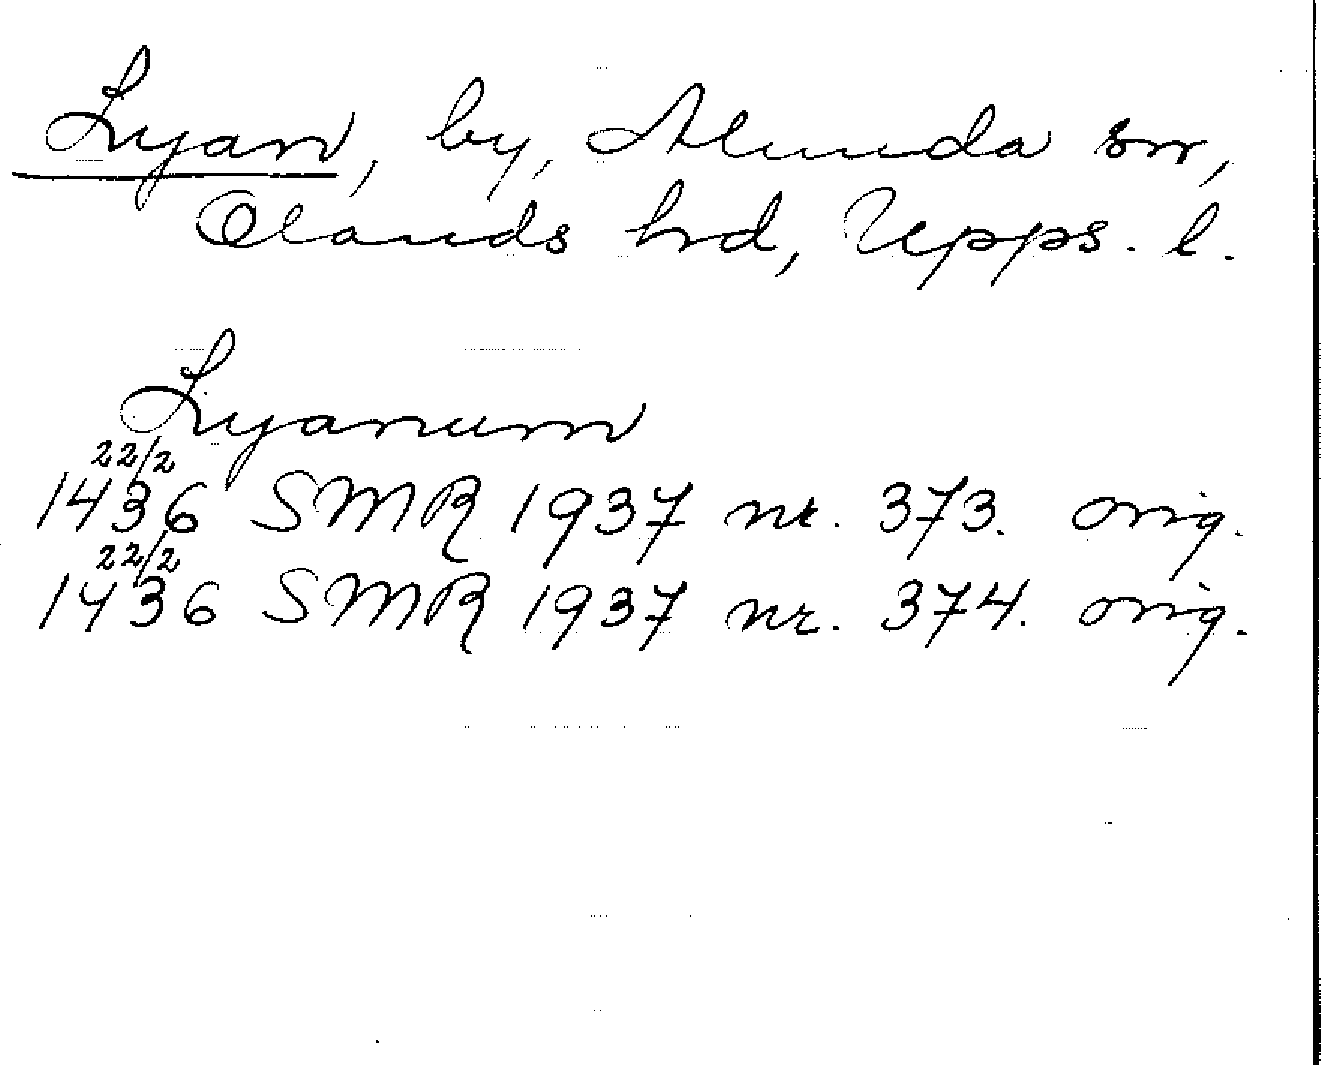 Lyan, by, Alunda sn,
Olands hrd, Upps. l.
Lyanum
22/2
1436 SMR 1937 nr. 373. orig.
22/2
1436 SMR 1937 nr. 374. orig.